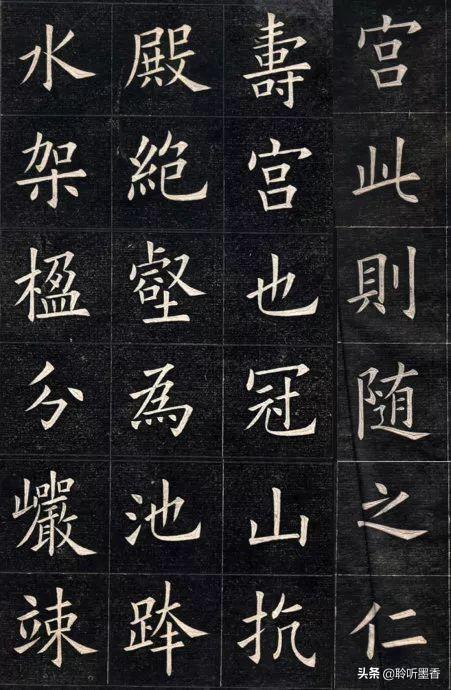 宫此則随之仁
壽宫也冠山抗
殿絶壑為池跨
水架楹分巗竦
头条 @聆听墨香